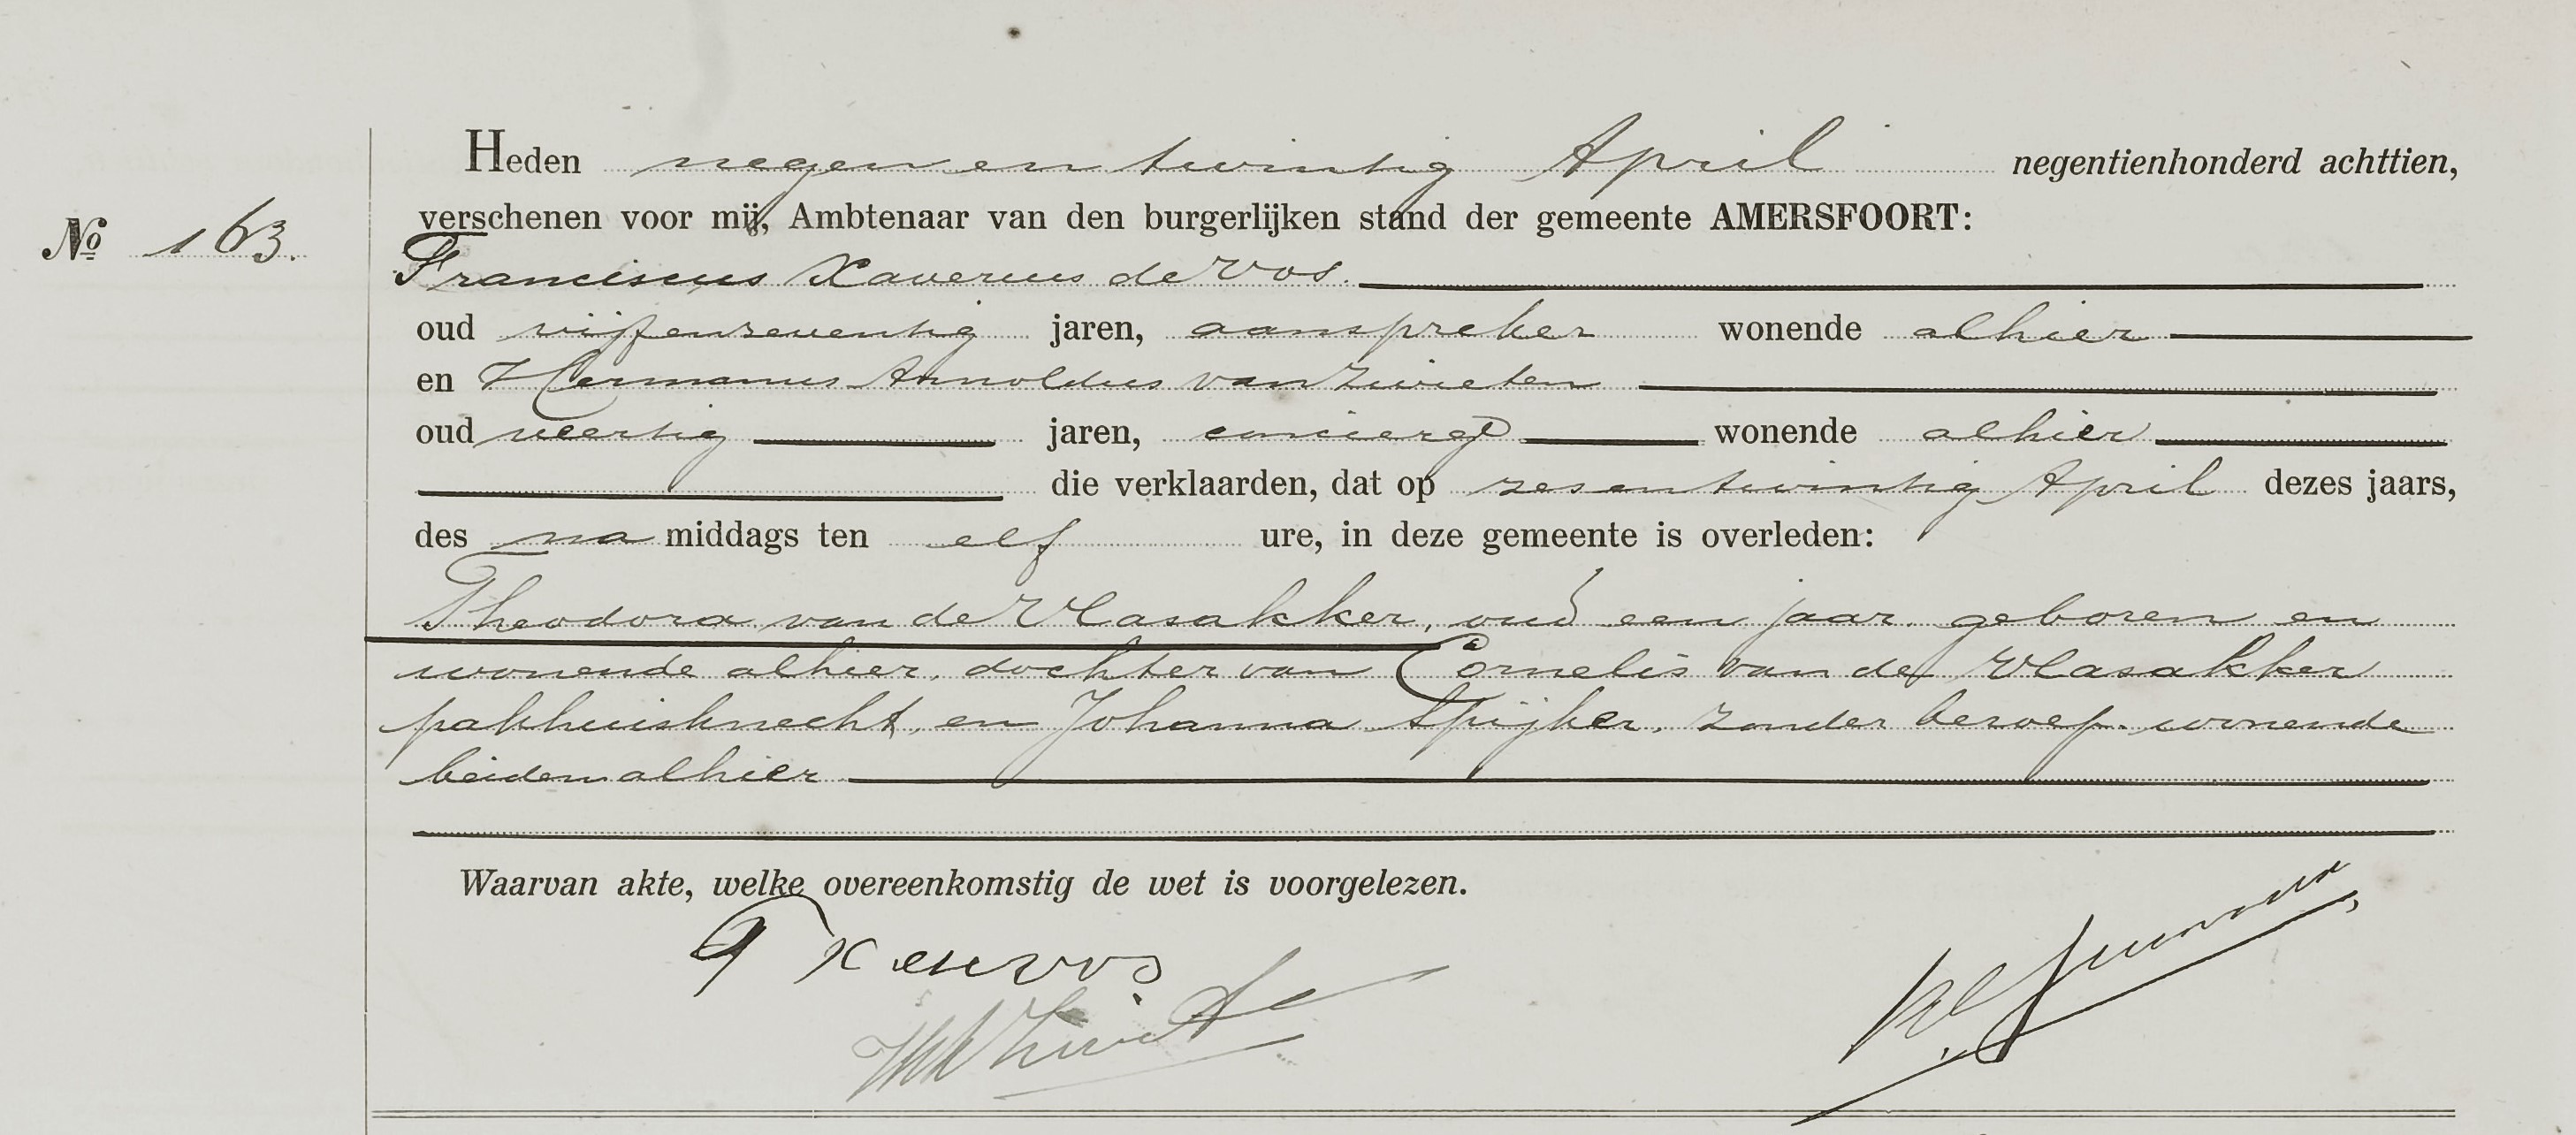 Heden negen en twintig April negentienhonderd achttien,
verschenen voor mij, Ambtenaar van den burgerlijken stand der gemeente AMERSFOORT:
Nº 163.
Franciscus Xaverius de Vos.
oud vijfenzeventig jaren, aanspreker wonende alhier
en Hermanus Arnoldus van Zwieten
oud veertig jaren, concierge wonende alhier
die verklaarden, dat op zesentwintig April dezes jaars,
des na middags ten elf ure, in deze gemeente is overleden:
Theodora van de Vlasakker, oud een jaar, geboren en
wonende alhier, dochter van Cornelis van de Vlasakker
pakhuisknecht, en Johanna Spijker, zonder beroep, wonende
beiden alhier
Waarvan akte, welke overeenkomstig de wet is voorgelezen.
F X de Vos